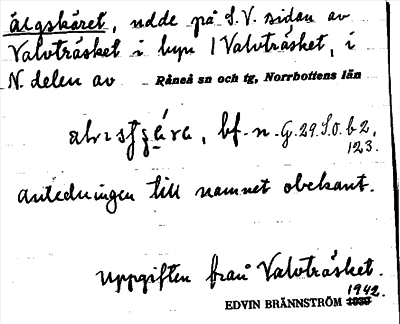 älgskäret, udde på S.V. sidan av
Valvträsket i byn Valvträsket, i
N. delen av Råneå sn och tg, Norrbottens län
bf. n. G. 29. S.O. b 2,
123.
anledningen till namnet obekant.
Uppgiften från Valvträsket.
1942.
EDVIN BRÄNNSTRÖM 1939